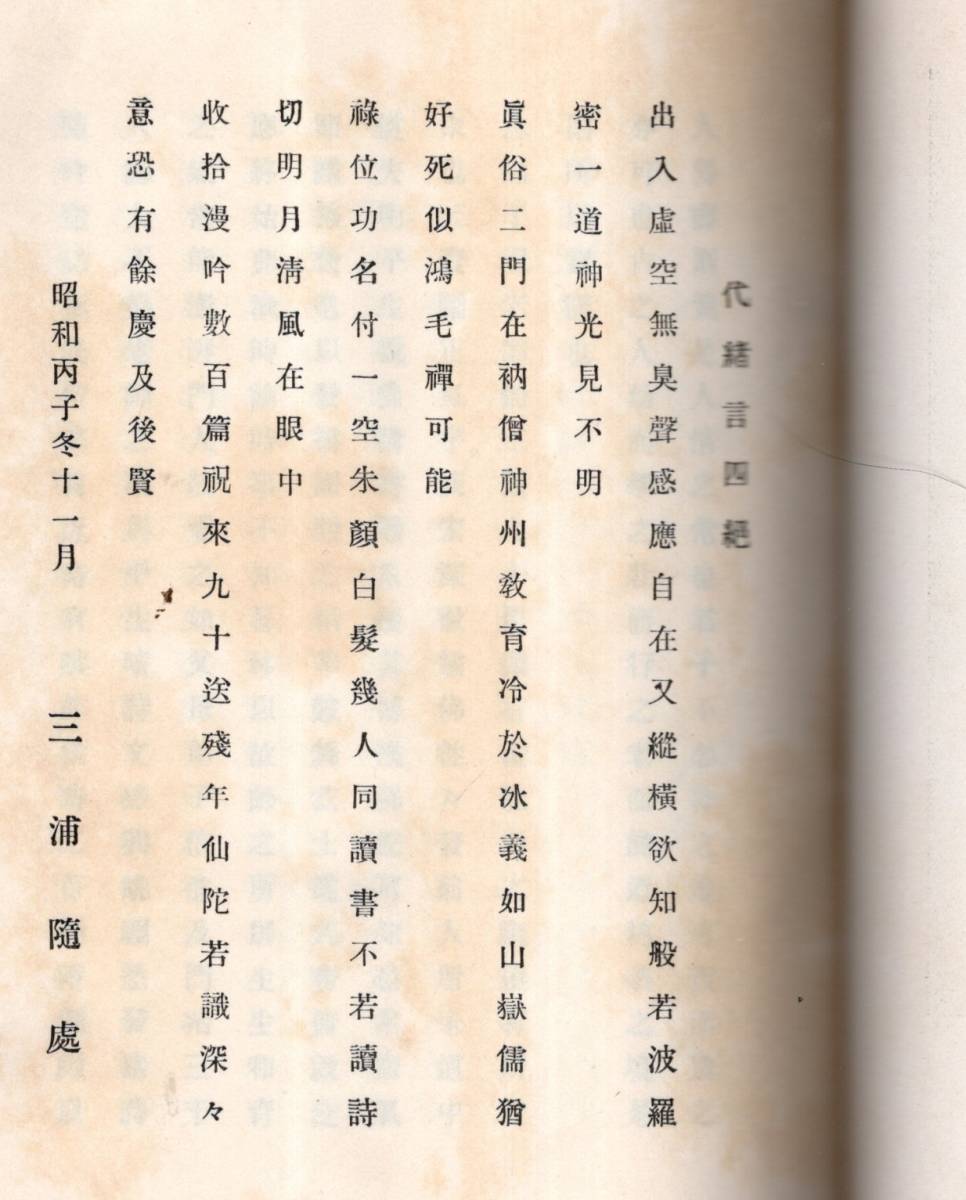 代緖言四絕
出入虛空無臭聲感應自在又縱橫欲知般若波羅
密一道神光見不明
眞俗二門在衲僧神州敎育冷於冰義如山嶽儒猶
好死似鴻毛禪可能
祿位功名付一空朱顏白髮幾人同讀書不若讀詩
切明月淸風在眼中
收拾漫吟數百篇祝來九十送殘年仙陀若識深々
意恐有餘慶及後賢
昭和丙子冬十一月 三浦隨處